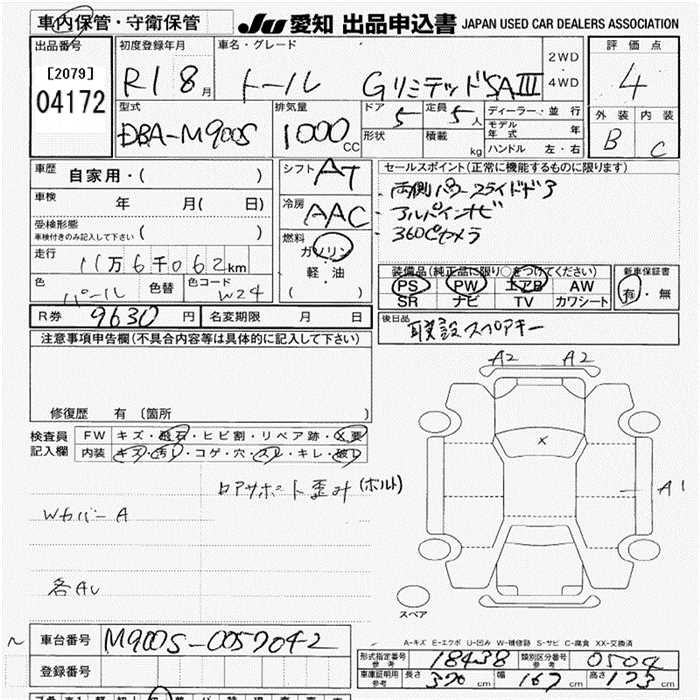 車内保管・守衛保管
JU 愛知 出品申込書 JAPAN USED CAR DEALERS ASSOCIATION
出品番号 初度登録年月 車名・グレード 2WD 評価点
[2079] R1 8月 トール GリミテッドSAIII 4WD 4
04172
型式 排気量 ドア 5 定員 5人 ディーラー・並行 外装 内装
DBA-M900S 1000CC 形状 積載 kg モデル年式 年 B C
ハンドル 左・右
車歴 自家用・( ) シフト AT セールスポイント(正常に機能するものに限ります)
車検 年 月( 日) 冷房 AAC 両側パワースライドドア
受検形態 ( ) アルパインナビ
車検付きのみ記入して下さい 燃料 360°カメラ
走行 11万6千062km ガソリン
軽・油 装備品(純正品に限り○をつけてください) 新車保証書
色 パール 色替 色コード W24 ( ) PS PW エアB AW 有・無
SR ナビ TV カワシート
R券 9630円 名変期限 月 日 後日品 取説 スペアキー
注意事項申告欄(不具合内容等は具体的に記入して下さい)
A2 A2
修復歴 有 (箇所 )
検査員 FW キズ・飛石・ヒビ割・リペア跡・X要
記入欄 内装 キズ・汚レ・コゲ・穴・スレ・キレ・破レ
X
ロアサポート歪み(ボルト) A1
Wカバー A
各AU
スペア
A-キズ E-エクボ U-凹み W-補修跡 S-サビ C-腐食 XX-交換済
~ 車台番号 M900S-0057042
形式指定番号 参考 18438 類別区分番号 参考 0504
登録番号 車庫証明用 参考 長さ 370cm 幅 167cm 高さ 173cm